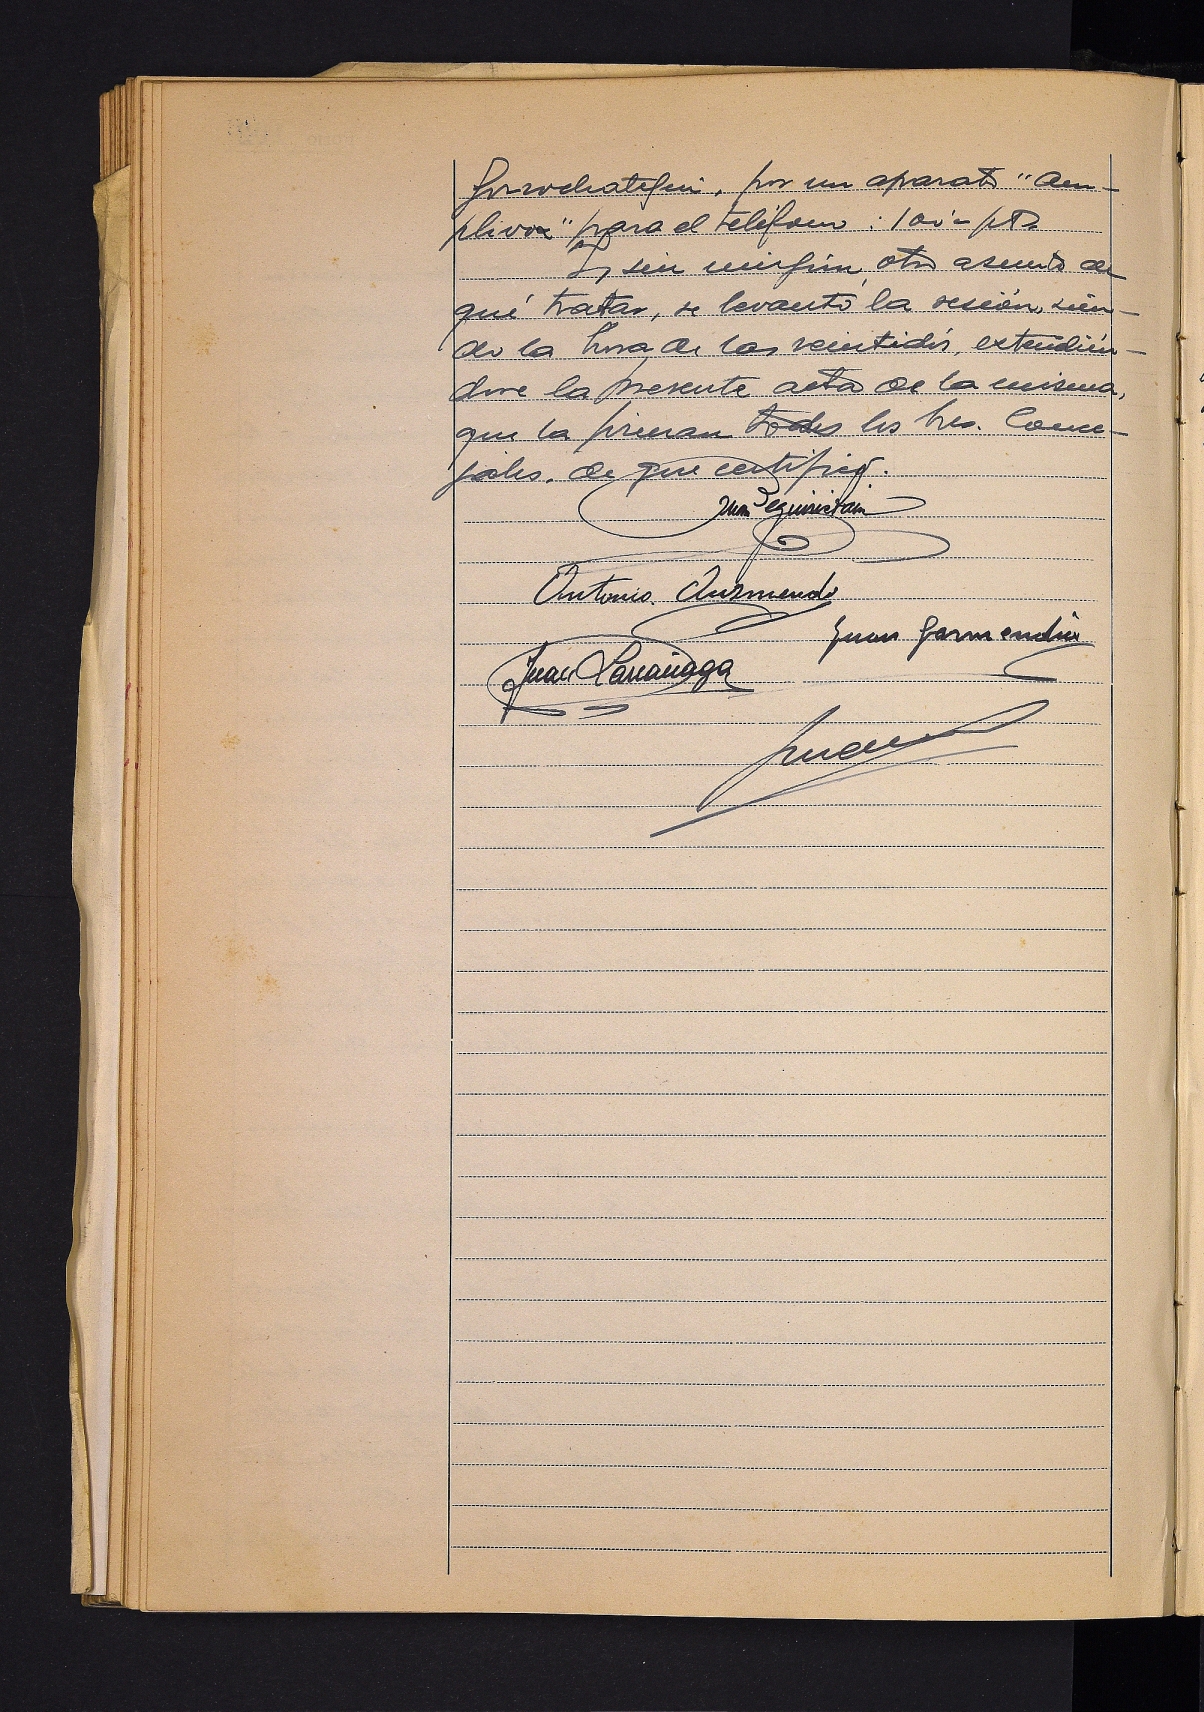 Gorrochategui, por un aparato "Am-
plivox" para el teléfono : 100'- pts.
Y sin ningún otro asunto de
qué tratar, se levantó la sesión, sien-
do la hora de las veintidós, extendién-
dose la presente acta de la misma,
que la firman todos los Sres. Conce-
jales, de que certifico.
Juan Eguiristain
Antonio Auzmendi
Juan Garmendia
Juan Larrañaga